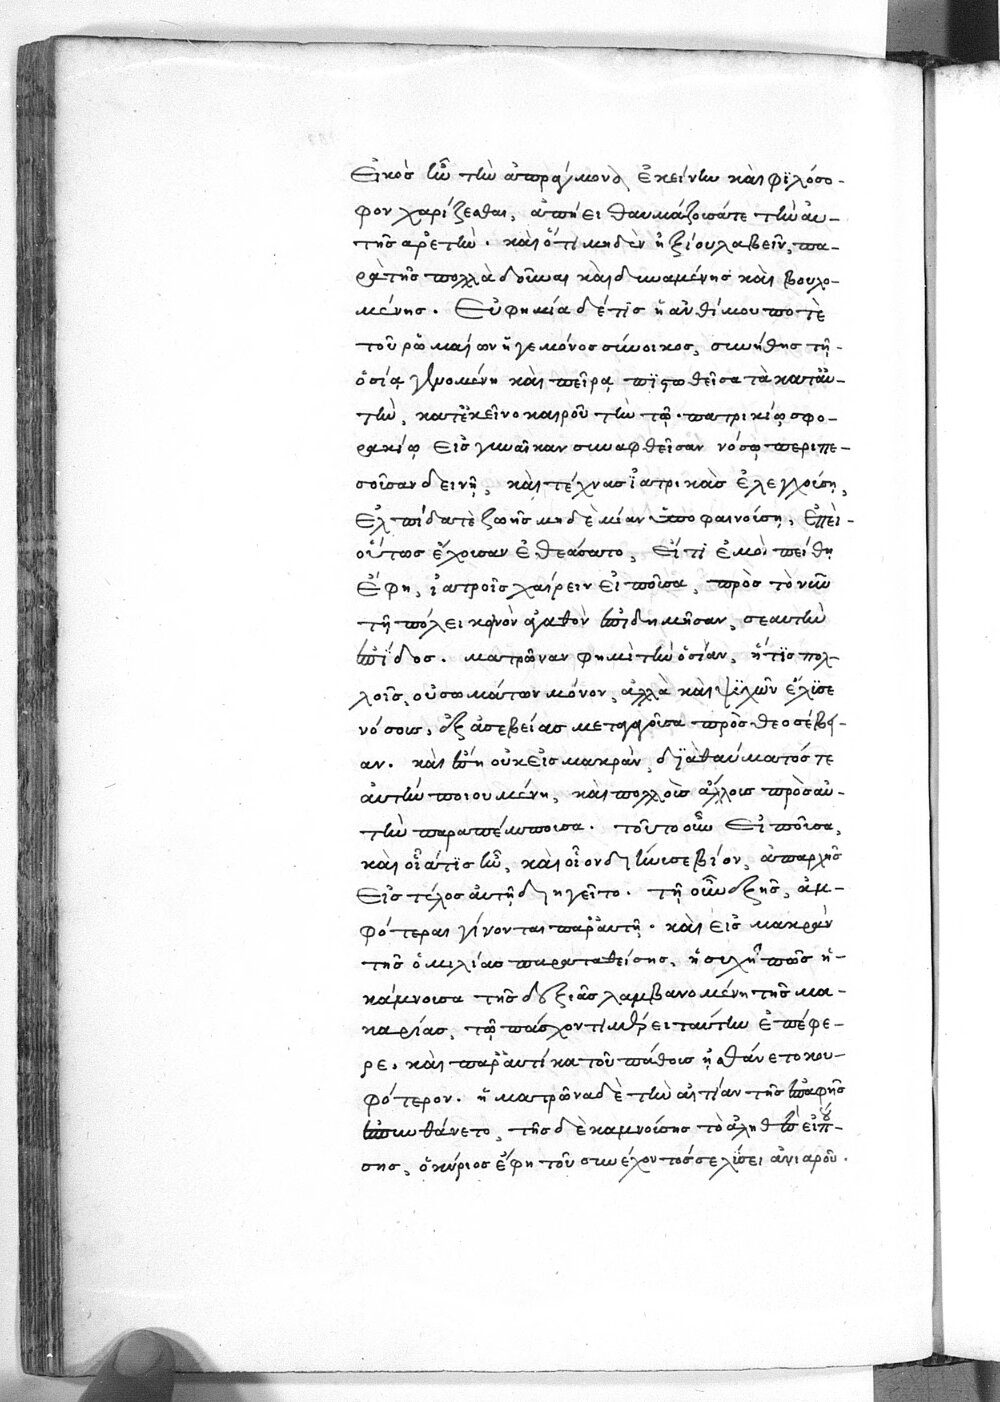 εἰκὸς ἦν τὴν ἀπράγμονα ἐκείνην καὶ φιλόσο-
φον χαρίζεσθαι, ἀπῄει θαυμάζουσά τε τὴν αὐ-
τῆς ἀρετὴν. καὶ ὅτι μηδὲν ἠξίου λαβεῖν, πα-
ρὰ τῆς πολλὰ δοῦναι καὶ δυναμένης καὶ βουλο-
μένης. Εὐφημία δέ τις ἡ ἀνθίμου ποτὲ
τοῦ ῥωμαίων ἡγεμόνος σύνοικος, συνήθης τῇ
ὁσίᾳ γενομένη καὶ πείρᾳ πιστωθεῖσα τὰ κατ' αὐ-
τὴν, κατ' ἐκεῖνο καιροῦ τὴν τῷ πατρικίῳ σφο-
ρακίῳ εἰς γυναῖκαν συναφθεῖσαν νόσῳ περιπε-
σοῦσαν δεινῇ, καὶ τέχνας ἰατρικὰς ἐλεγχούσῃ,
ἐλπίδα τὲ ζωῆς μηδὲ μίαν ὑποφαινούσῃ, ἐπεὶ
οὕτως ἔχουσαν ἐθεάσατο, εἴ τι ἐμοὶ πείθῃ
ἔφη, ἰατροῖς χαίρειν εἰποῦσα, πρὸς τὸ νῦν
τῇ πόλει κοινὸν ἀγαθὸν ἐπιδημῆσαν, σεαυτὴν
ἐπίδος. ματρῶναν φημὶ τὴν ὁσίαν, ἥτις πολ-
λοῖς, οὐ σωμάτων μόνον, ἀλλὰ καὶ ψυχῶν ἔλυσε
νόσους, ἐξ ἀσεβείας μεταγαγοῦσα πρὸς θεοσέβει-
αν. καὶ ἐπῄ οὐκ εἰς μακρὰν, διὰ θαύματός τε
αὐτὴν ποιουμένη, καὶ πολλοὺς ἄλλους πρὸς αὐ-
τὴν παραπέμπουσα. τοῦτο οὖν εἰποῦσα,
καὶ οἵα τις ἦν, καὶ οἷον διήνυσε βίον, ἀπαρχῆς
εἰς τέλος αὐτῇ διηγεῖτο. τῇ οὖν ἑξῆς, ἀμ-
φότεραι γίνονται παρ' αὐτῇ. καὶ εἰς μακρὰν
τῆς ὁμιλίας παραταθείσης, ἡσυχῇ πως ἡ
κάμνουσα τῆς δεξιᾶς λαμβανομένη τῆς μα-
καρίας, τῷ πάσχοντι μέρει ταύτην ἐπέφε-
ρε, καὶ παρ' αὐτίκα τοῦ πάθους ᾐσθάνετο κου-
φότερον. ἡ ματρῶνα δὲ τὴν αἰτίαν τῆς ἐπαφῆς
ἐπυνθάνετο, τῆς δὲ καμνούσης τὸ ἀληθὲς εἰπού-
σης, ὁ κύριος ἔφη τοῦ συνέχοντός σε λύσει ἀνιαροῦ.